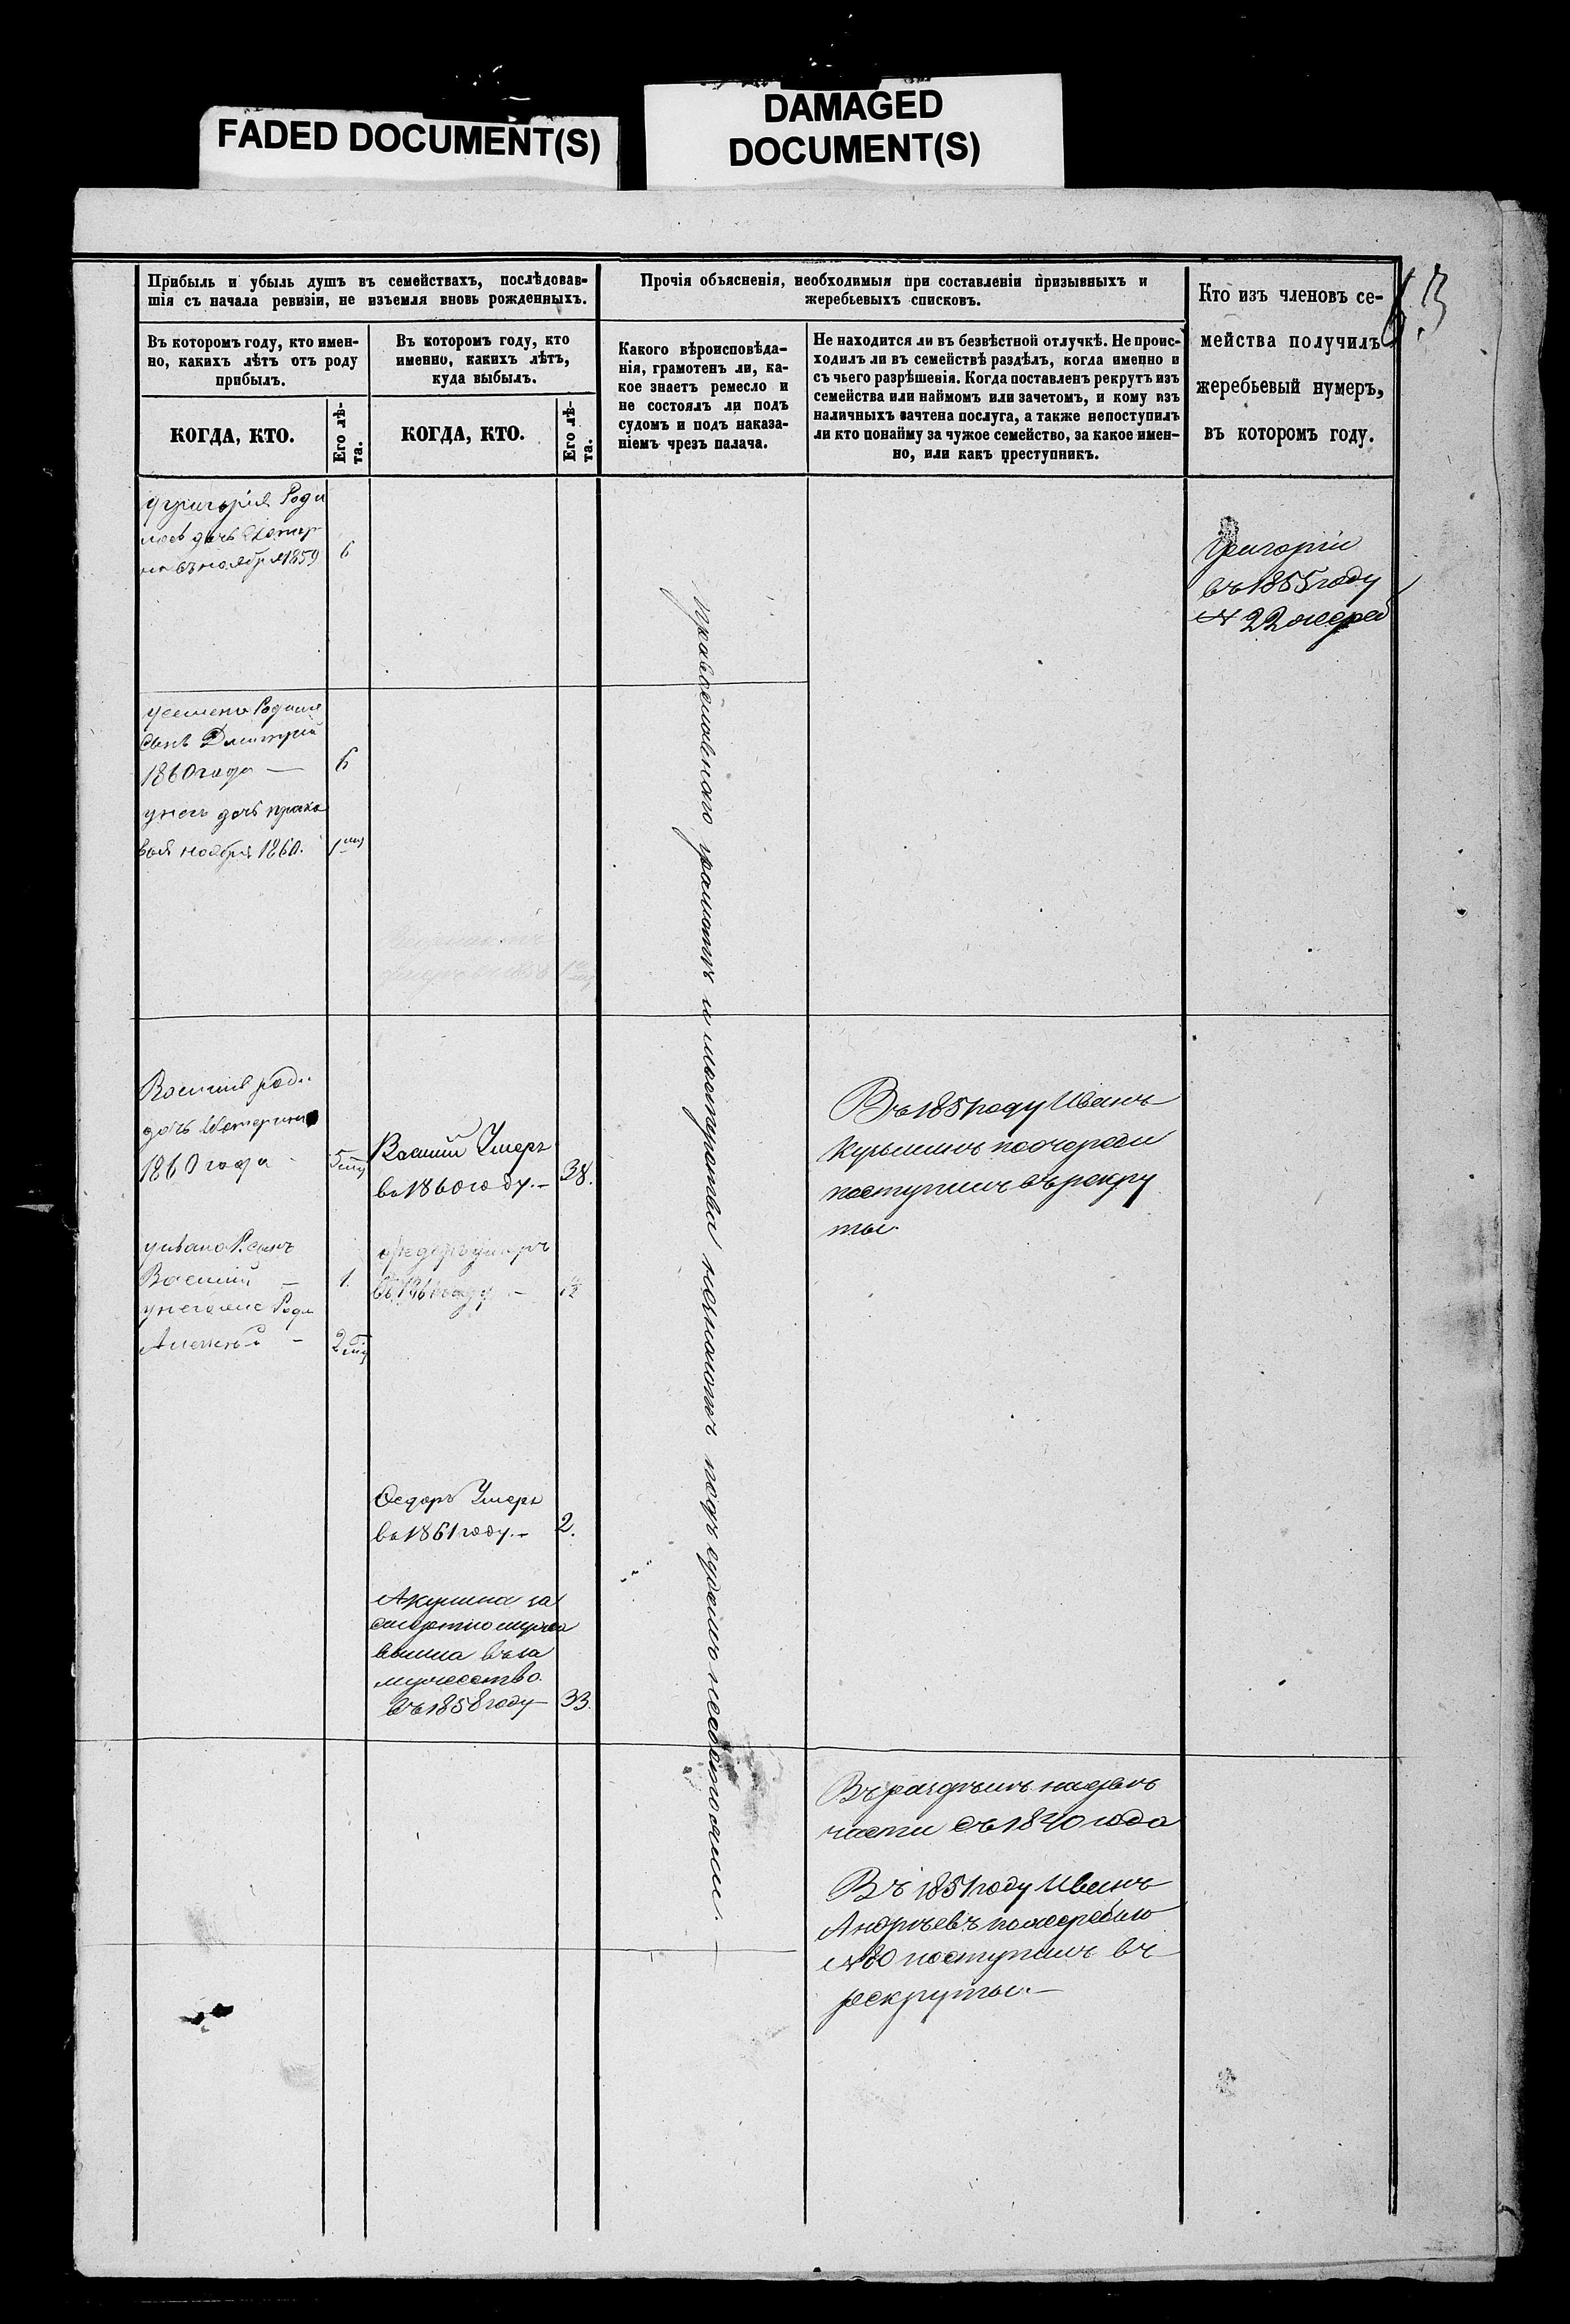 FADED DOCUMENT(S)
DAMAGED
DOCUMENT(S)
Прибыль и убыль душъ въ семействахъ, послѣдовав-
шія съ начала ревизіи, не изъемля вновь рожденныхъ.
Прочія объясненія, необходимыя при составленіи призывныхъ и
жеребьевыхъ списковъ.
Кто изъ членовъ се-
мейства получилъ
жеребьевый нумеръ,
въ которомъ году.
Въ которомъ году, кто имен-
но, какихъ лѣтъ отъ роду
прибылъ.
Въ которомъ году, кто
именно, какихъ лѣтъ,
куда выбылъ.
Какого вѣроисповѣда-
нія, грамотенъ ли, ка-
кое знаетъ ремесло и
не состоялъ ли подъ
судомъ и подъ наказа-
ніемъ чрезъ палача.
Не находится ли въ безвѣстной отлучкѣ. Не проис-
ходилъ ли въ семействѣ раздѣлъ, когда именно и
съ чьего разрѣшенія. Когда поставленъ рекрутъ изъ
семейства или наймомъ или зачетомъ, и кому изъ
наличныхъ зачтена послуга, а также непоступилъ
ли кто понайму за чужое семейство, за какое имен-
но, или какъ преступникъ.
КОГДА, КТО.
Его лѣ-
та.
КОГДА, КТО.
Его лѣ-
та.
у григорія Роди
лась дочь
ноября 1859
6
Григорій
въ 1855 году
№ 22 жереб
Родился
сынъ Дмитрій
1860 года —
6
у него дочь праско
вья ноября 1860.
православнаго грамотъ и мастерства незнаютъ подъ судомъ несостояли.
Василій роди
дочь Катерина
1860 года
5
Василій Умеръ
въ 1860 году. —
38.
Въ 1851 году Иванъ
поочереди
поступилъ въ рекру
ты.
у ивана Р. сынъ
Василій —
1.
умеръ
въ 1861 году —
у него же Роди
Алексѣй —
2
Ѳедоръ Умеръ
въ 1861 году. —
2.
Акулина за
въ за
мужество
въ 1858 году —
33.
Въ раздѣлѣ на двѣ
части съ 1840 года
Въ 1851 году Иванъ
Андрѣевъ пожеребью
№ 80 поступилъ въ
рекруты. —